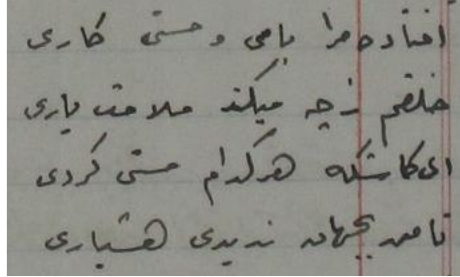 افتاده مرا با می و مستی کاری
خلقم ز چه میکند ملامت باری
ای کاشکه هر کدام مستی کردی
تا من بجهان ندیدی هشیاری